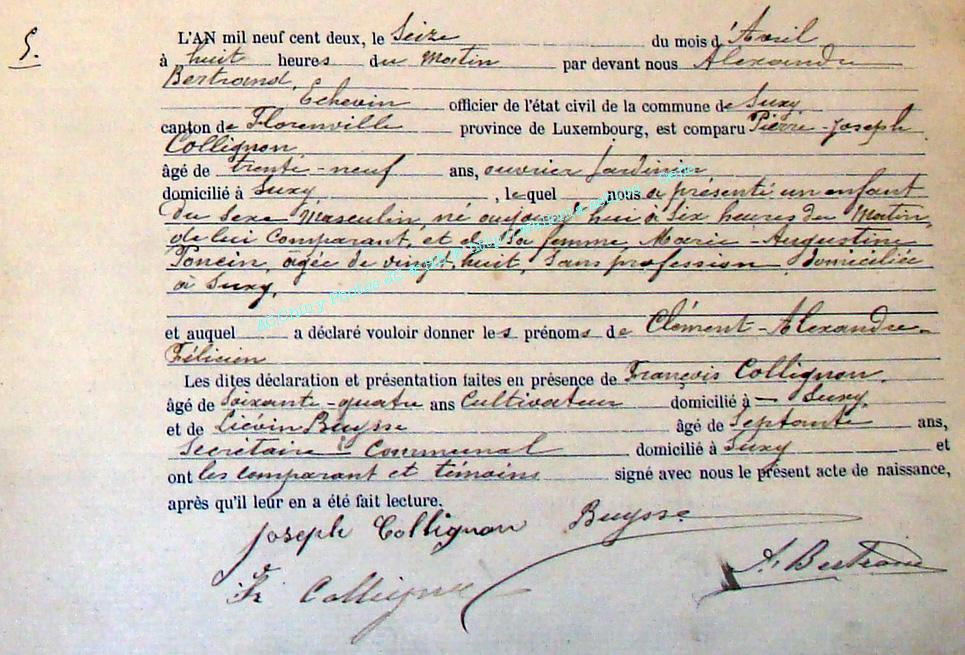 5.
L'AN mil neuf cent deux, le Seize du mois d'Avril
à huit heures du Matin par devant nous Alexandre
Bertrand,
Echevin officier de l'état civil de la commune de Suxy,
canton de Florenville province de Luxembourg, est comparu Pierre-Joseph
Collignon,
âgé de trente-neuf ans, ouvrier Jardinier,
domicilié à Suxy, lequel nous a présenté un enfant
du sexe Masculin, né aujourd'hui à Six heures du Matin,
de lui Comparant, et de Sa femme, Marie-Augustine
Poncin, agée de vingt-huit, Sans profession, domiciliée
à Suxy,
et auquel a déclaré vouloir donner les prénoms de Clément-Alexandre-
Félicien
Les dites déclaration et présentation faites en présence de François Collignon,
âgé de Soixante-quatre ans Cultivateur domicilié à Suxy,
et de Liévin Buysse âgé de Septante ans,
Secrétaire Communal domicilié à Suxy et
ont les comparant et témoins signé avec nous le présent acte de naissance,
après qu'il leur en a été fait lecture.
Joseph Collignon Buysse
Fr Collignon A. Bertrand